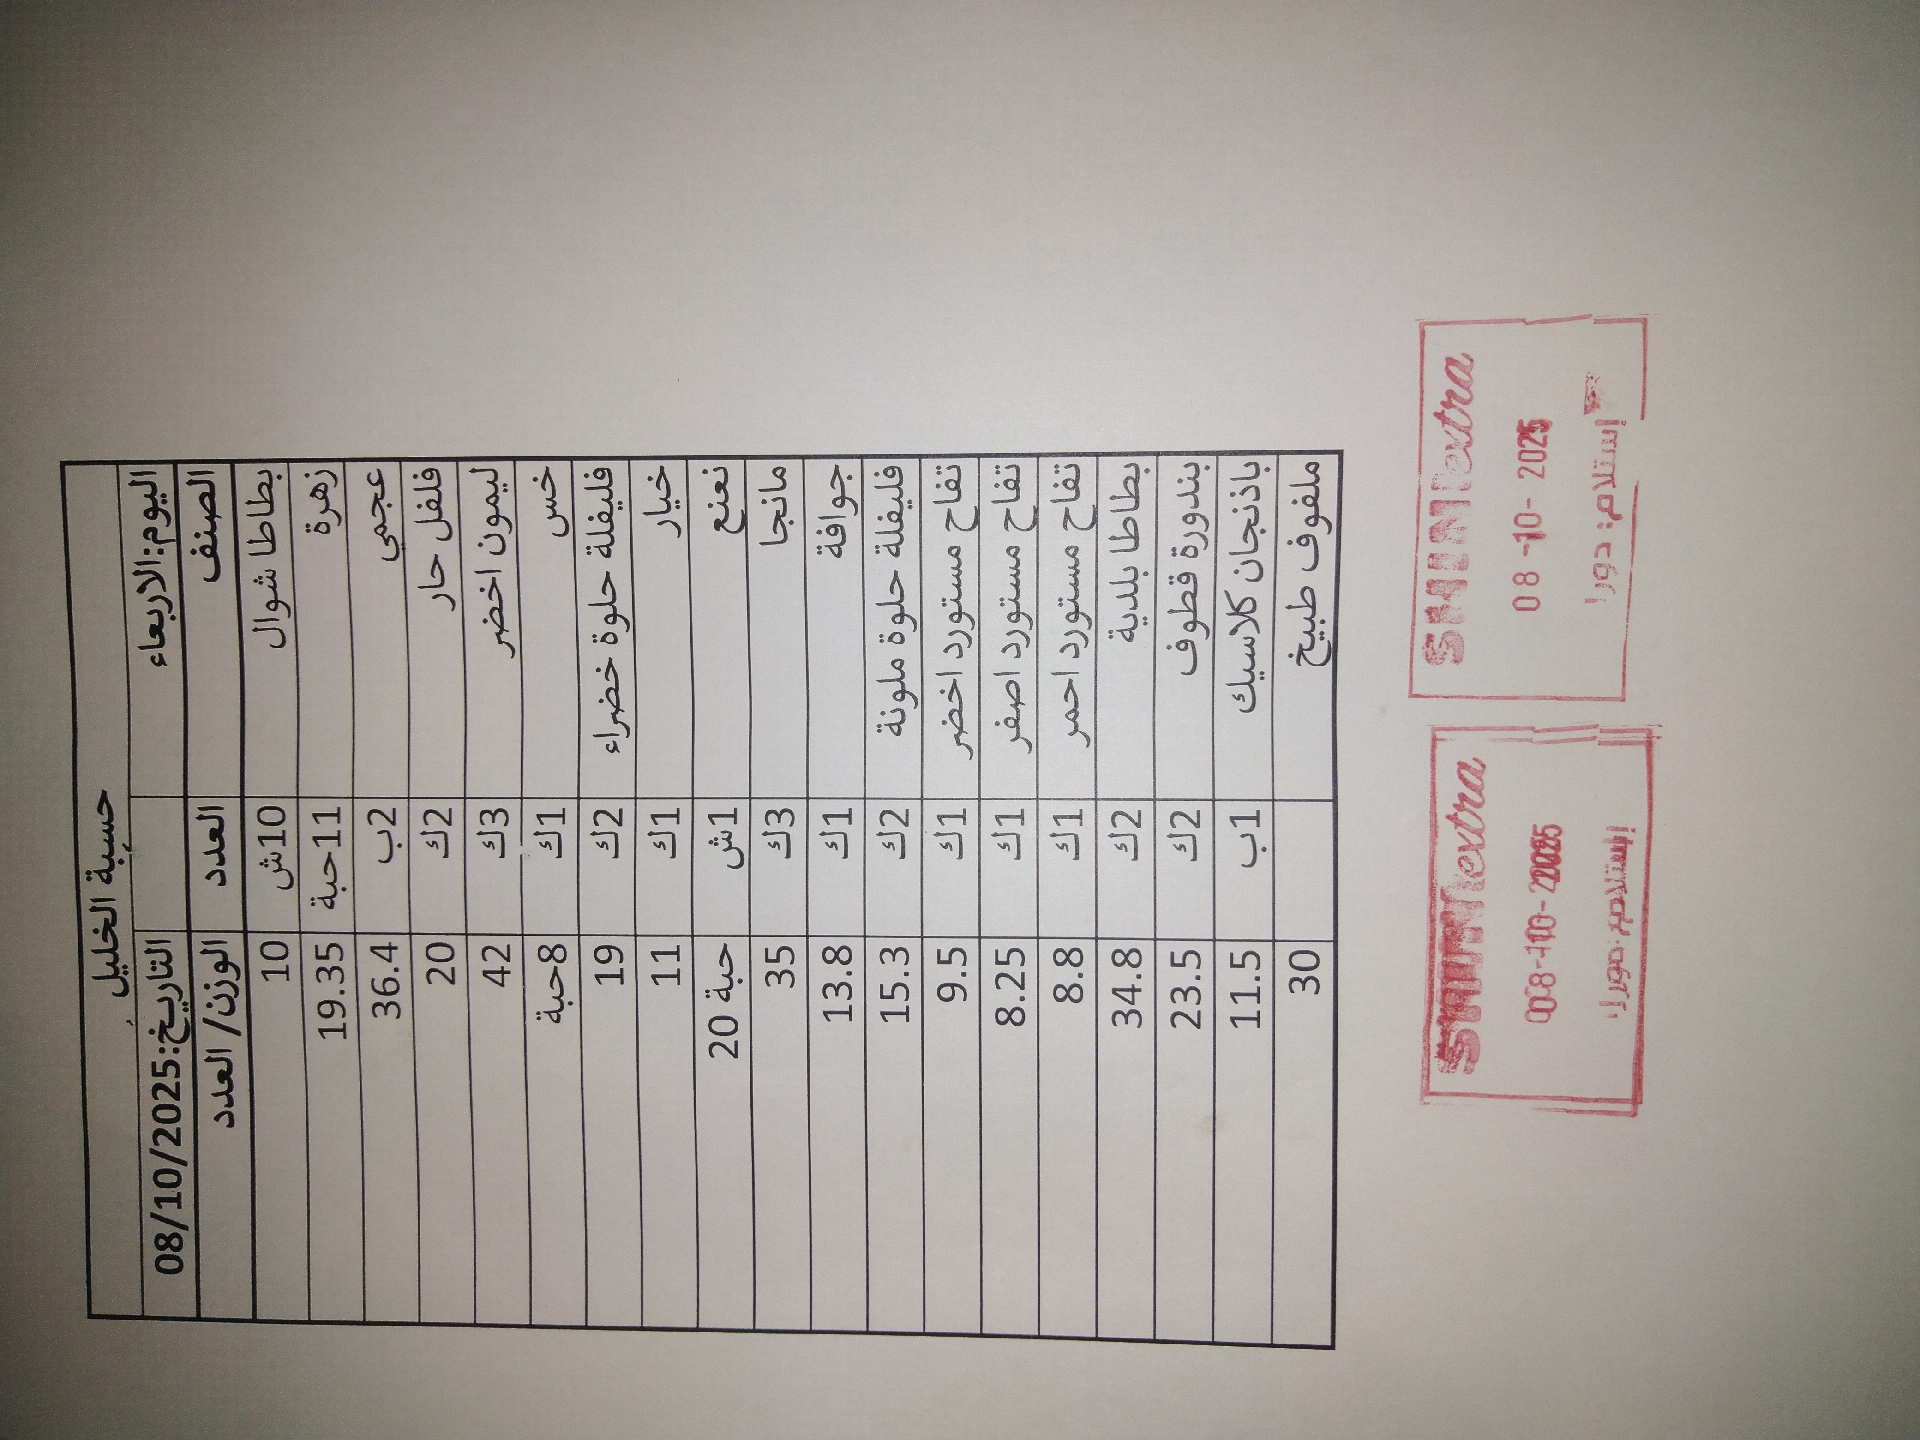 حسبة الخليل
اليوم:الاربعاء التاريخ:08/10/2025
الصنف العدد الوزن/ العدد
بطاطا شوال 10ش 10
زهرة 11حبة 19.35
عجمي 2ب 36.4
فلفل حار 2ك 20
ليمون اخضر 3ك 42
خس 1ك 8حبة
فليفلة حلوة خضراء 2ك 19
خيار 1ك 11
نعنع 1ش 20 حبة
مانجا 3ك 35
جوافة 1ك 13.8
فليفلة حلوة ملونة 2ك 15.3
تفاح مستورد اخضر 1ك 9.5
تفاح مستورد اصفر 1ك 8.25
تفاح مستورد احمر 1ك 8.8
بطاطا بلدية 2ك 34.8
بندورة قطوف 2ك 23.5
باذنجان كلاسيك 1ب 11.5
ملفوف طبيخ 30
extra
08-10-2025
إستلام: دورا
extra
08-10-2025
إستلام: دورا